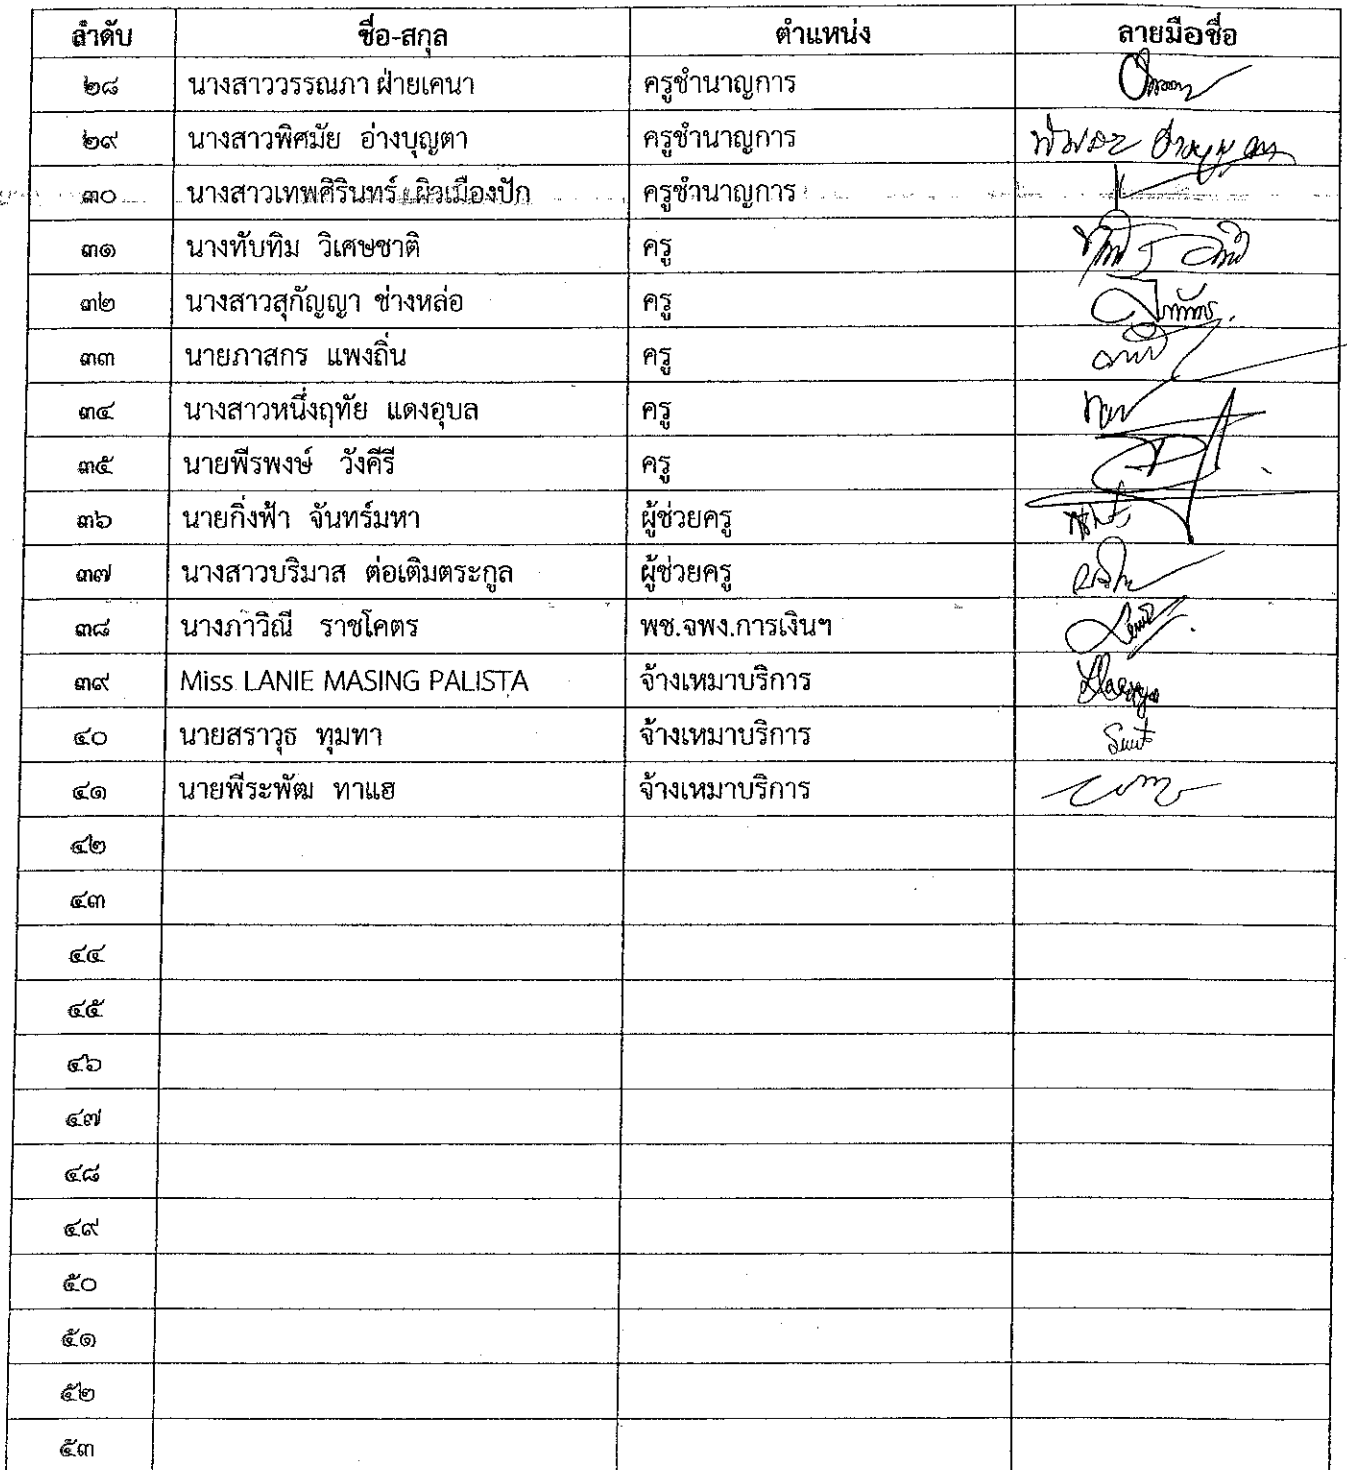 ลำดับ ชื่อ-สกุล ตำแหน่ง ลายมือชื่อ
๒๘ นางสาววรรณภา ฝ่ายเคนา ครูชำนาญการ
๒๙ นางสาวพิศมัย อ่างบุญตา ครูชำนาญการ
๓๐ นางสาวเทพศิรินทร์ ผิวเมืองปัก ครูชำนาญการ
๓๑ นางทับทิม วิเศษชาติ ครู
๓๒ นางสาวสุกัญญา ช่างหล่อ ครู
๓๓ นายภาสกร แพงถิ่น ครู
๓๔ นางสาวหนึ่งฤทัย แดงอุบล ครู
๓๕ นายพีรพงษ์ วังคีรี ครู
๓๖ นายกิ่งฟ้า จันทร์มหา ผู้ช่วยครู
๓๗ นางสาวบริมาส ต่อเติมตระกูล ผู้ช่วยครู
๓๘ นางภาวิณี ราชโคตร พช.จพง.การเงินฯ
๓๙ Miss LANIE MASING PALISTA จ้างเหมาบริการ
๔๐ นายสราวุธ ทุมทา จ้างเหมาบริการ
๔๑ นายพีระพัฒ ทาแฮ จ้างเหมาบริการ
๔๒
๔๓
๔๔
๔๕
๔๖
๔๗
๔๘
๔๙
๕๐
๕๑
๕๒
๕๓